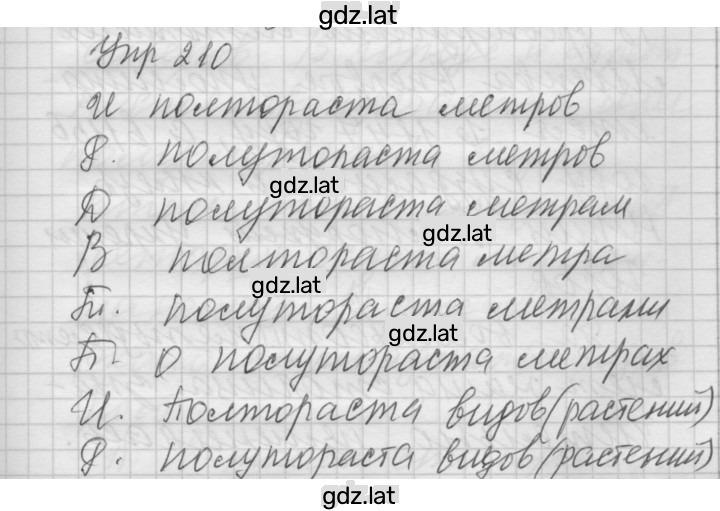 gdz.lat
Упр 210
И полтораста метров
Р. полутораста метров
gdz.lat
Д полутораста метрам
gdz.lat
В полтораста метра
gdz.lat
Тв. полутораста метрами
gdz.lat
П о полутораста метрах
И. Полтораста видов (растений)
Р. полутораста видов (растений)
gdz.lat